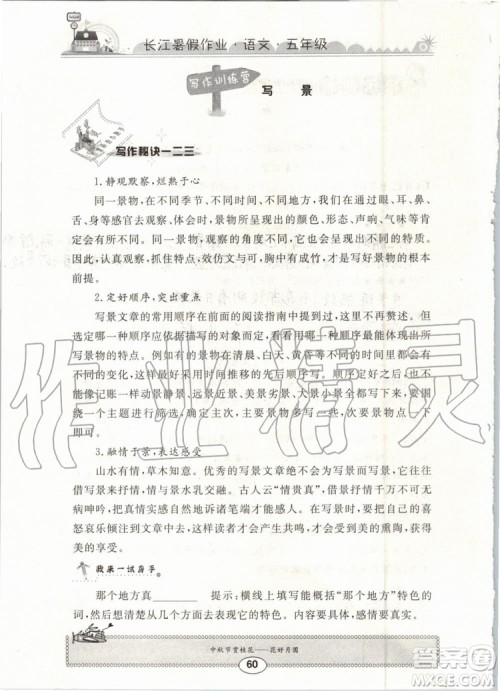 长江暑假作业·语文·五年级
写作训练营
写 景
写作秘诀一二三
1.静观默察，烂熟于心
同一景物，在不同季节、不同时间、不同地方，我们用眼、耳、鼻、
舌、身等感官去观察、体会时，景物所呈现出的颜色、形态、声响、气味等肯
定会有所不同。同一景物，观察的角度不同，它也会呈现出不同的特质。
因此，认真观察，抓住特点，效仿文与可，胸中有成竹，是写好景物的根本
前提。
2.定好顺序，突出重点
写景文章的常用顺序已经在前面的阅读指南中提到过，这里不再赘述。但
选定哪一种顺序应依据描写的对象而定，看用哪一种顺序能体现出所
写景物的特点。例如有的景物在清晨、白天、黄昏等不同的时间点会有
不同的变化，这时最好采用时间推移的先后顺序写。顺序定好后，不可能
像记账一样动景静景、远景近景、美景劣景、大景小景全都写下来，要
围绕一个主题进行筛选，确定主次，主要内容多写一些，次要内容少写一下
即可。
3.融情于景，表达感受
山水有情，草木知意。优秀的写景文章绝不是单纯的景物描写，它往往
借写景来抒情，情与景水乳交融。古人云“情贵真”，情感的抒发不可无
病呻吟，真情实感地诉诸笔端才能感人。在写景时，要将自己的喜
怒哀乐倾注到文章中去，这样读者才能融会其中，受到美的熏陶，获得
美的享受。
我来一试身手
那个地方真________ 提示：横线上填写能概括“那个地方”特色的
词，然后想想从几个方面去表现它的特色，具体内容要为表现特色服务。
中秋节赏桂花——花好月圆
60
作业精灵
MXQE.COM